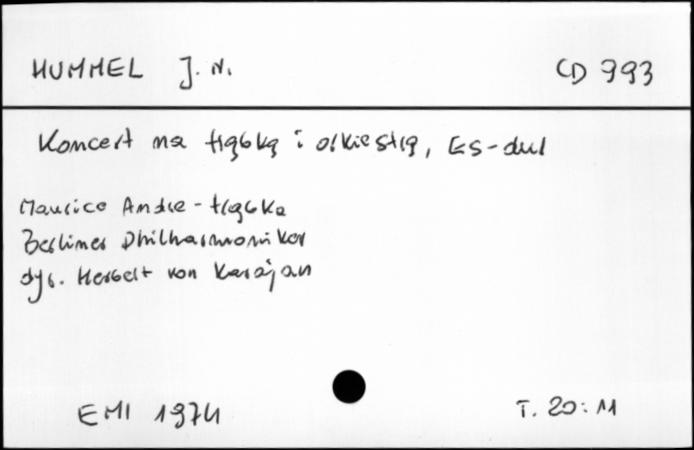 HUMMEL J. N. CD 993
Koncert na trąbkę i orkiestrę, Es-dur
Maurice Andre - trąbka
Berliner Philharmoniker
dyr. Herbert von Karajan
EMI 1974 T. 20:11